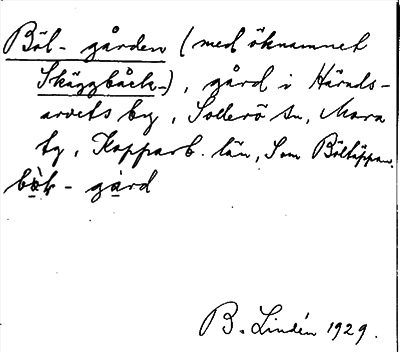 Böl-gården (med öknamnet
Skäggbäck-), gård i Härads-
arvets by, Sollerö sn, Mora
tg, Kopparb. län, Som Böltäppan.
bö̀k-gård
B. Lindén 1929.